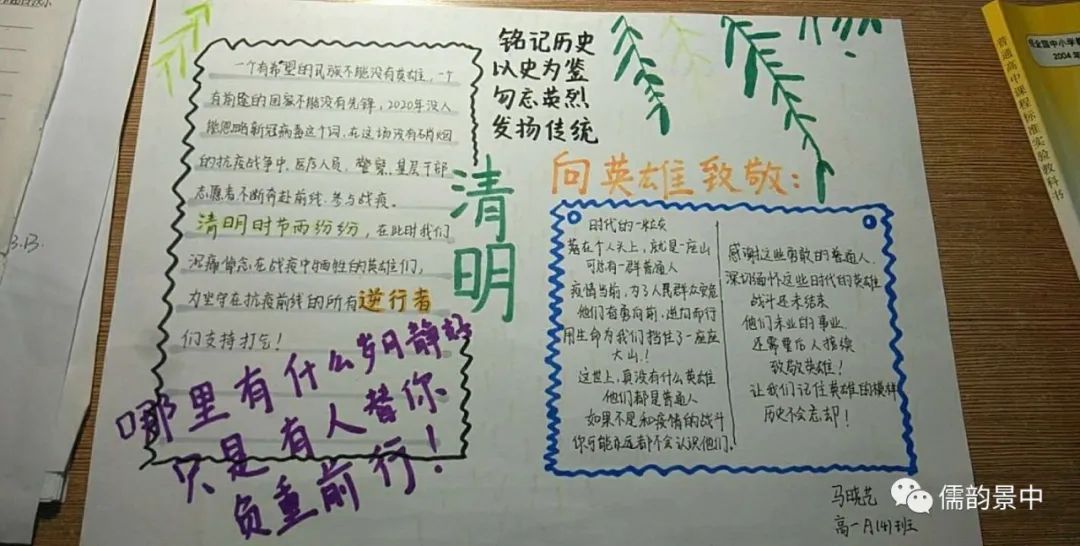 一个有希望的民族不能没有英雄,一个
有前途的国家不能没有先锋,2020年没人
能忽略新冠病毒这个词,在这场没有硝烟
的抗疫战争中,医疗人员,警察,基层干部
志愿者不断奔赴前线,参与战疫。
清明时节雨纷纷,在此时我们
沉痛悼念在战疫中牺牲的英雄们,
为坚守在抗疫前线的所有逆行者
们支持打气!
哪里有什么岁月静好
只是有人替你
负重前行!
铭记历史
以史为鉴
勿忘英烈
发扬传统
清明
向英雄致敬:
时代的一粒灰
落在个人头上,就是一座山
可总有一群普通人
疫情当前,为了人民群众安危
他们奋勇向前,逆向而行
用生命为我们挡住了一座座
大山!
这世上,真没有什么英雄
他们都是普通人
如果不是和疫情的战斗
你可能永远都不会认识他们。
感谢这些勇敢的普通人
深切缅怀这些时代的英雄
战斗还未结束
他们未业的事业
还需要后人接续
致敬英雄!
让我们记住英雄的模样
历史不会忘却!
马晓艺
高一A(4)班
普通高中课程标准实验教科书
2004年
3.B.
儒韵景中